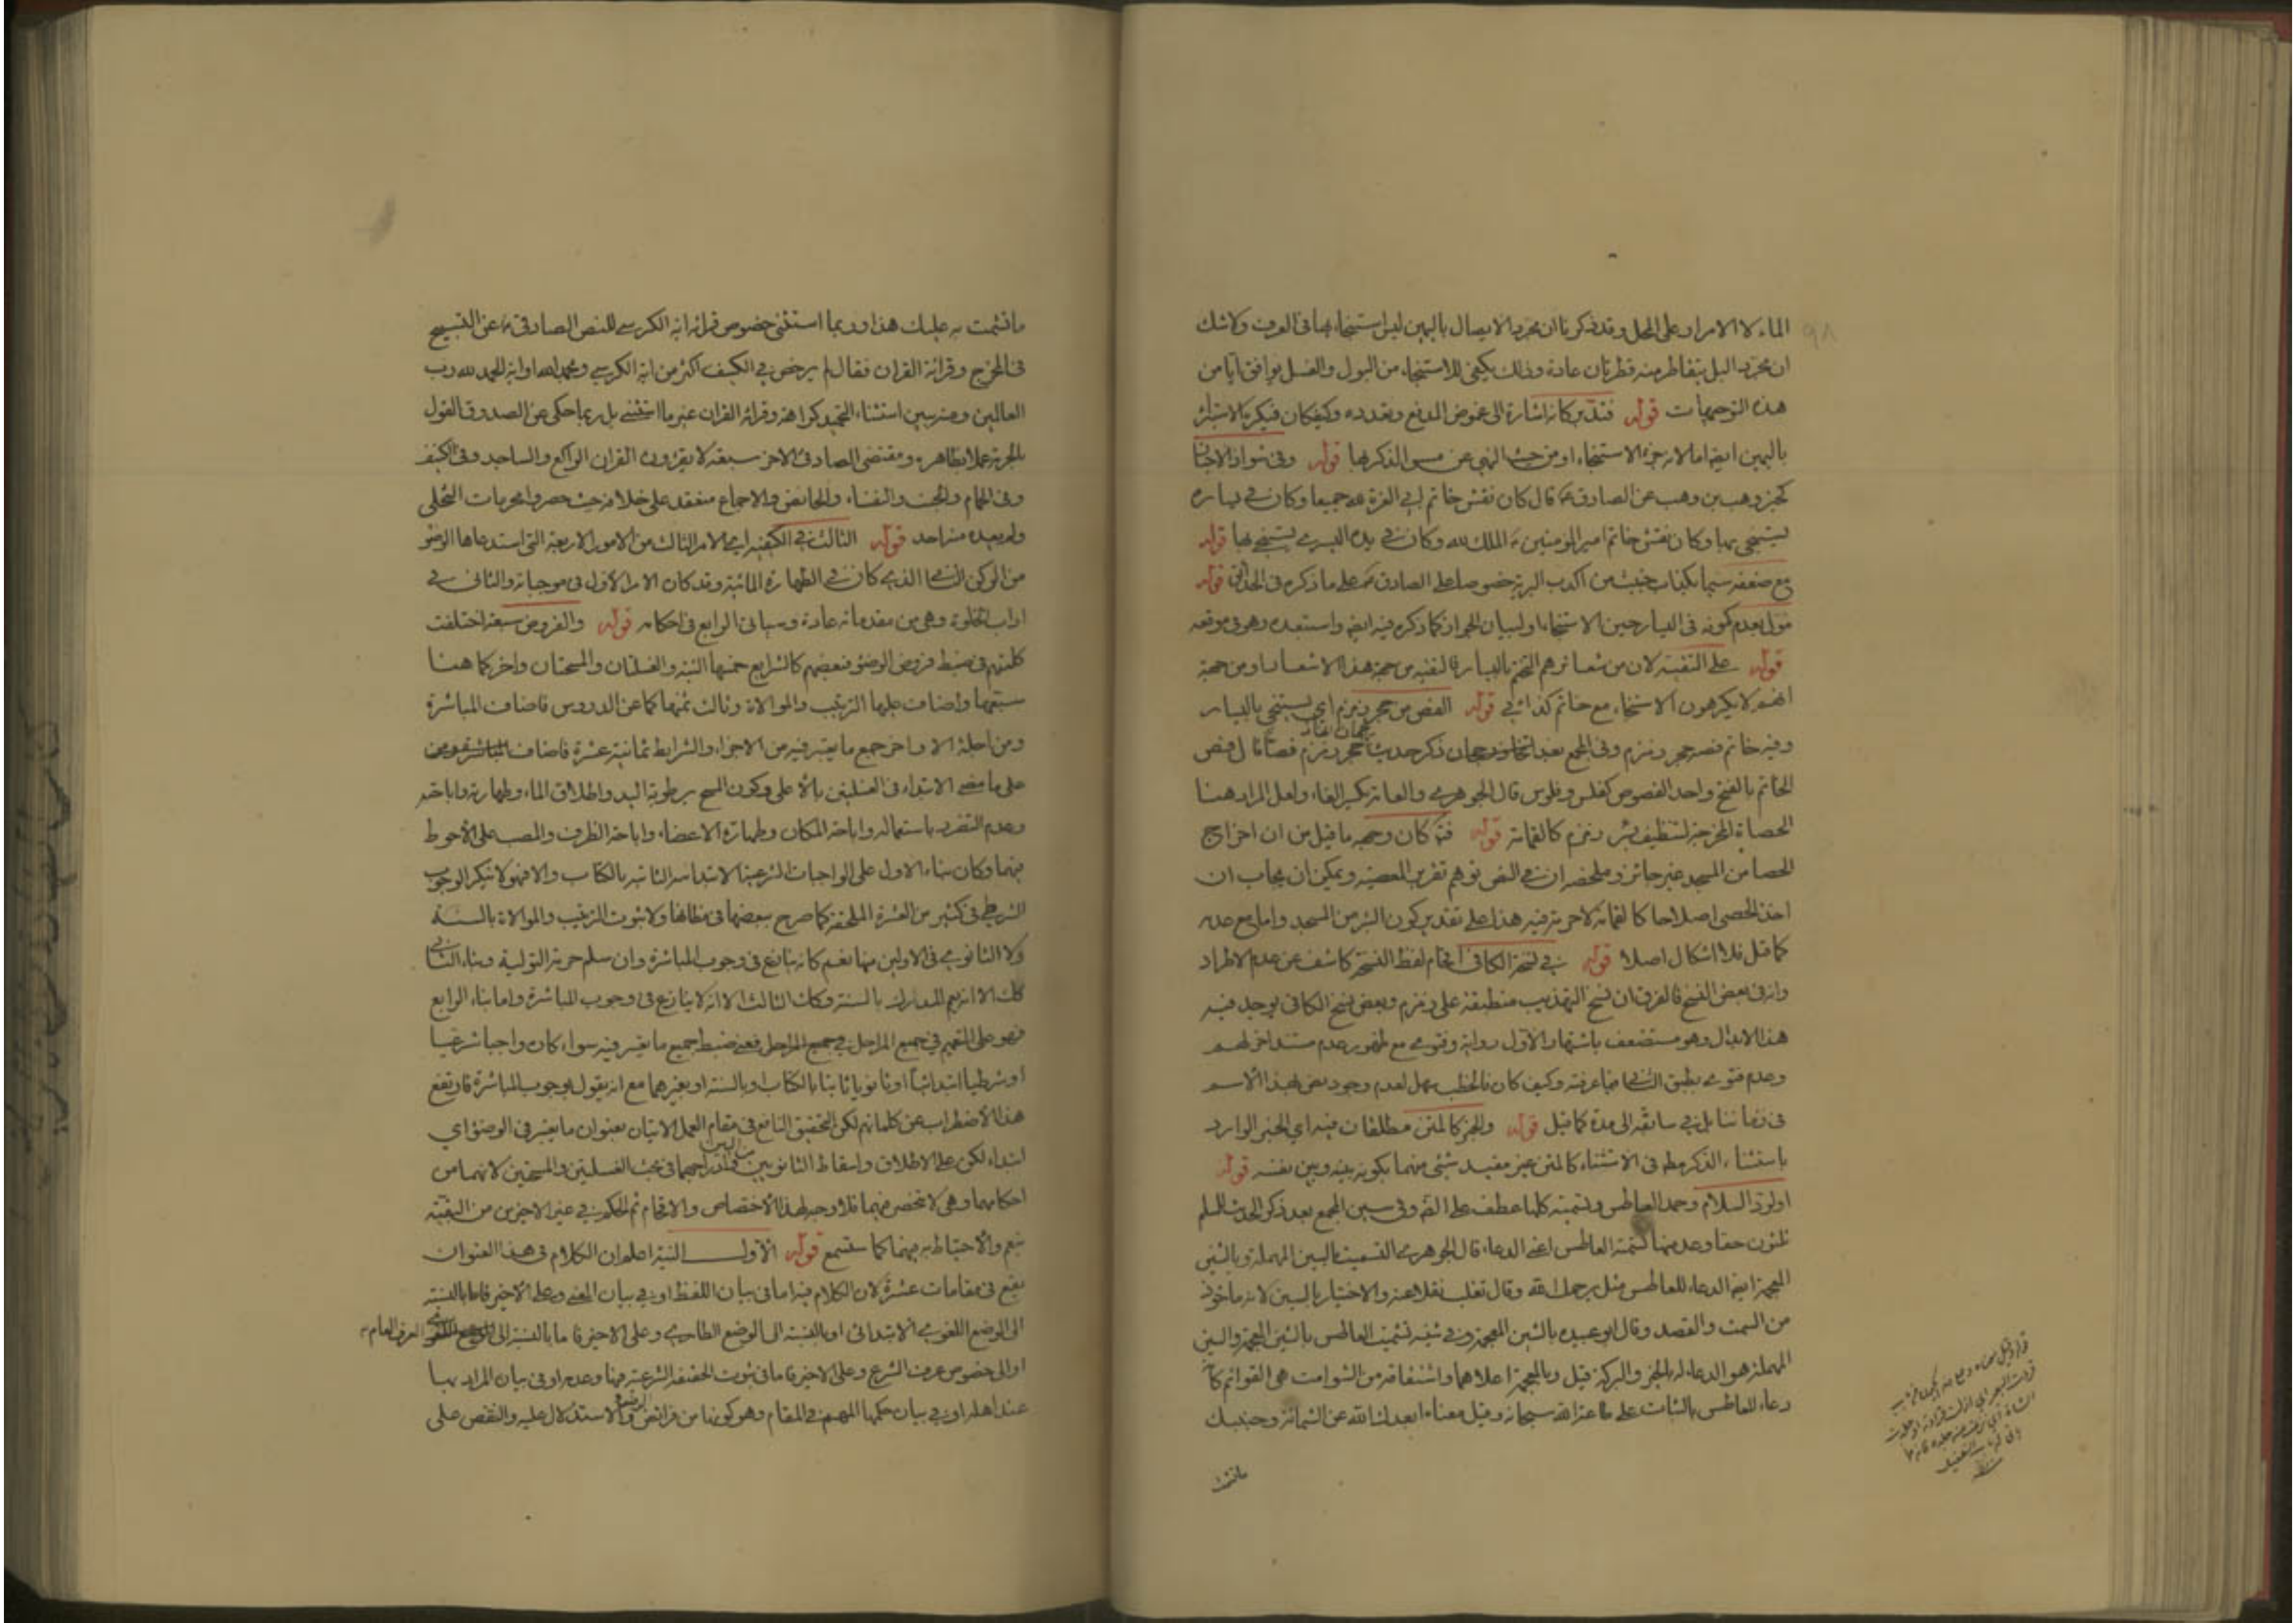 الماء لا الامرار على المحل وقد ذكرنا ان مجرد الايصال باليمين ليس استنجاء بها فى العرف ولا شك
ان مجرد البلل يتقاطر منه قطرتان عادة وذلك يكفى للاستنجاء من البول والغسل يوافق ايا من
هذه التوجيهات قوله فتدبر كانه اشارة الى غموض المدفع وتعدده وكيفكان فيكره الاستبراء
باليمين ايضا اما لانه جزء الاستنجاء او من حيث النهى عن مس الذكر بها قوله وفى شواذ الاخبار
كخبر وهب بن وهب عن الصادق ع قال كان نقش خاتم ابى العزة لله جميعا وكان فى يساره
يستنجى بها وكان نقش خاتم امير المومنين ع الملك لله وكان فى يده اليسرى يستنجى بها قوله
مع ضعفه سيما بكذاب خبيث من اكذب البرية خصوصا على الصادق ع على ما ذكره فى الحدائق قوله
مؤل بعدم كونه فى اليسار حين الاستنجاء او لبيان الجواز كما ذكره فيه ايضا واستبعده وهو فى موقعه
قوله على التقية لان من شعائرهم التختم باليسار فالتقية من جهة هذا الاشعار او من جهة
انهم لا يكرهون الاستنجاء مع خاتم كذائى قوله الفص من حجر زمزم اى يستنجى باليسار
وفيه خاتم فصه حجر زمزم وفى المجمع بعد ذكر حديث حجر زمزم فصا قال فص
الخاتم بالفتح واحد الفصوص كفلس وفلوس قال الجوهرى والعامة بكسر الفاء ولعل المراد هنا
الحصاة المخرجة لتنظيف بئر زمزم كالقمامة قوله فتم كان وجهه ما قيل من ان اخراج
الحصا من المسجد غير جائز وملخصه ان فى النص توهم تقرير المعصية ويمكن ان يجاب ان
اخذ الحصى اصلاحا كالقمامة لا حرمة فيه هذا على تقدير كون البئر من المسجد واما مع عدمه
كما قيل فلا اشكال اصلا قوله فى نسخة الكافى اقحام لفظ النسخة كاشف عن عدم الاطراد
وانه فى بعض النسخ فالفرق ان نسخ التهذيب منطبقة على زمزم وبعض نسخ الكافى يوجد فيه
هذا الابدال وهو مستضعف باشتهار الاول رواية وفتوى مع ظهور عدم مستند اخر لهم
وعدم فتوى بطبق الثانى فيما عرفته وكيف كان فالخطب سهل لعدم وجود فص لهذا الاسم
فى زماننا بل فى سابقه الى مدة كما قيل قوله والخبر كالمتن مطلقان فيه اى الخبر الوارد
باستثناء الذكر مطلق فى الاستثناء كالمتن غير مقيد بشئ منهما بكونه بينه وبين نفسه قوله
او لرد السلام وحمد العاطس وتسميته كلها عطف على وفى سين المجمع بعد ذكر الحديث للمسلم
ثلثون حقا وعد منها تسمية العاطس اعنى الدعاء قال الجوهرى التسميت بالسين المهملة وبالشين
المعجمة ايضا الدعاء للعاطس مثل يرحمك الله وقال ثعلب نقلا عنه والاختيار بالسين لانه ماخوذ
من السمت والقصد وقال ابو عبيده بالشين المعجمة وفى شينه تشميت العاطس بالشين المعجمة والسين
المهملة هو الدعاء له بالخير والبركة قيل وبالمعجمة اعلاهما واشتقاقه من الشوامت هى القوائم كانه
دعاء للعاطس بالثبات على طاعة الله سبحانه وقيل معناه ابعدك الله عن الشماتة وجنبك
ما تشمت
ما تشمت به عليك هذا وربما استثنى خصوص قرائة اية الكرسى للنص الصادق ع عن التسبيح
فى المخرج وقرائة القران فقال لم يرخص فى الكنيف اكثر من اية الكرسى وحمد الله او اية الحمد لله رب
العالمين ومنه يبين استثناء التحميد كراهة وقرائة القران غير ما استثنى بل ربما حكى عن الصدوق القول
بالحرمة عملا بظاهره ومقتضى الصادق الاخر سبعة لا يقرؤن القران الراكع والساجد وفى الكنيف
وفى الحمام والجنب والنفساء والحائض والاجماع منعقد على خلافه حيث حصروا محرمات التخلى
ولم يعده منه احد قوله الثالث فى الكيفية اى الامر الثالث من الامور الاربعة التى استدعاها الوضوء
من الركن الذى كان فى الطهارة المائية وقد كان الامر الاول فى موجباته والثانى فى
اداب الخلوة وهى من مقدماته عادة وسياتى الرابع فى احكامه قوله والفروض سبعة اختلفت
كلمتهم فى ضبط فروض الوضوء فبعضهم كالشرايع خمسها النية والغسلتان والمسحتان واخر كما هنا
سبعها واضاف عليها الترتيب والموالاة وثالث ثمنها كما عن الدروس فاضاف المباشرة
ومن اجلة الاواخر جمع ما يعتبر فيه من الاجزاء والشرايط ثمانية عشرة فاضاف
على ما مضى الابتداء فى الغسلتين بالاعلى وكون المسح برطوبة اليد واطلاق الماء وطهارته واباحته
وعدم التضرر باستعماله واباحة المكان وطهارة الاعضاء واباحة الظرف والمصب على الاحوط
فيهما وكان بناء الاول على الواجبات الشرعية الابتدائية الثابتة بالكتاب والا فهو لا ينكر الوجوب
الشرطى فى كثير من العشرة الملحقة كما صرح ببعضها فى مظانها ولا ثبوت الترتيب والموالاة بالسنة
ولا الثانوى فى الاولين منها نعم كانه ينازع فى وجوب المباشرة وان سلم حرمة التولية وبناء الثانى
كك الا انه يعم المدارك بالسنة وكك الثالث الا انه لا ينازع فى وجوب المباشرة واما بناء الرابع
فهو على التعميم فى جميع المراحل فعنى ضبط جميع ما يعتبر فيه سواء كان واجبا شرعيا
او شرطيا ابتدائيا او ثانويا ثابتا بالكتاب او بالسنة او بغيرهما مع انه يقول بوجوب المباشرة فارتفع
هذا الاضطراب عن كلماتهم لكن التحقيق النافع فى مقام العمل الاتيان بعنوان ما يعتبر فى الوضوء اى
ابتداء لكن على الاطلاق واسقاط الثانويين فى بحث الغسلتين والمسحين لانهما من
احكامهما وهى لا تنحصر فيهما فلا وجه لهذا الاختصاص والاقحام ثم الحكم فى غير الاخيرين من البقية
نعم والاحتياط به فيهما كما ستسمع قوله الاول النية اعلم ان الكلام فى هذا العنوان
يقع فى مقامات عشرة لان الكلام فيه اما فى بيان اللفظ او فى بيان المعنى وعلى الاخير فاما بالنسبة
الى الوضع اللغوى الابتدائى او بالنسبة الى الوضع الطارى وعلى الاخير فاما بالنسبة الى العرف العام
او الى خصوص عرف الشرع وعلى الاخير فاما فى ثبوت الحقيقة الشرعية فيها وعدمه او فى بيان المراد بها
عند اهله او فى بيان حكمها المهم فى المقام وهو كونها من فرائض الوضوء والاستدلال عليه والنقص على